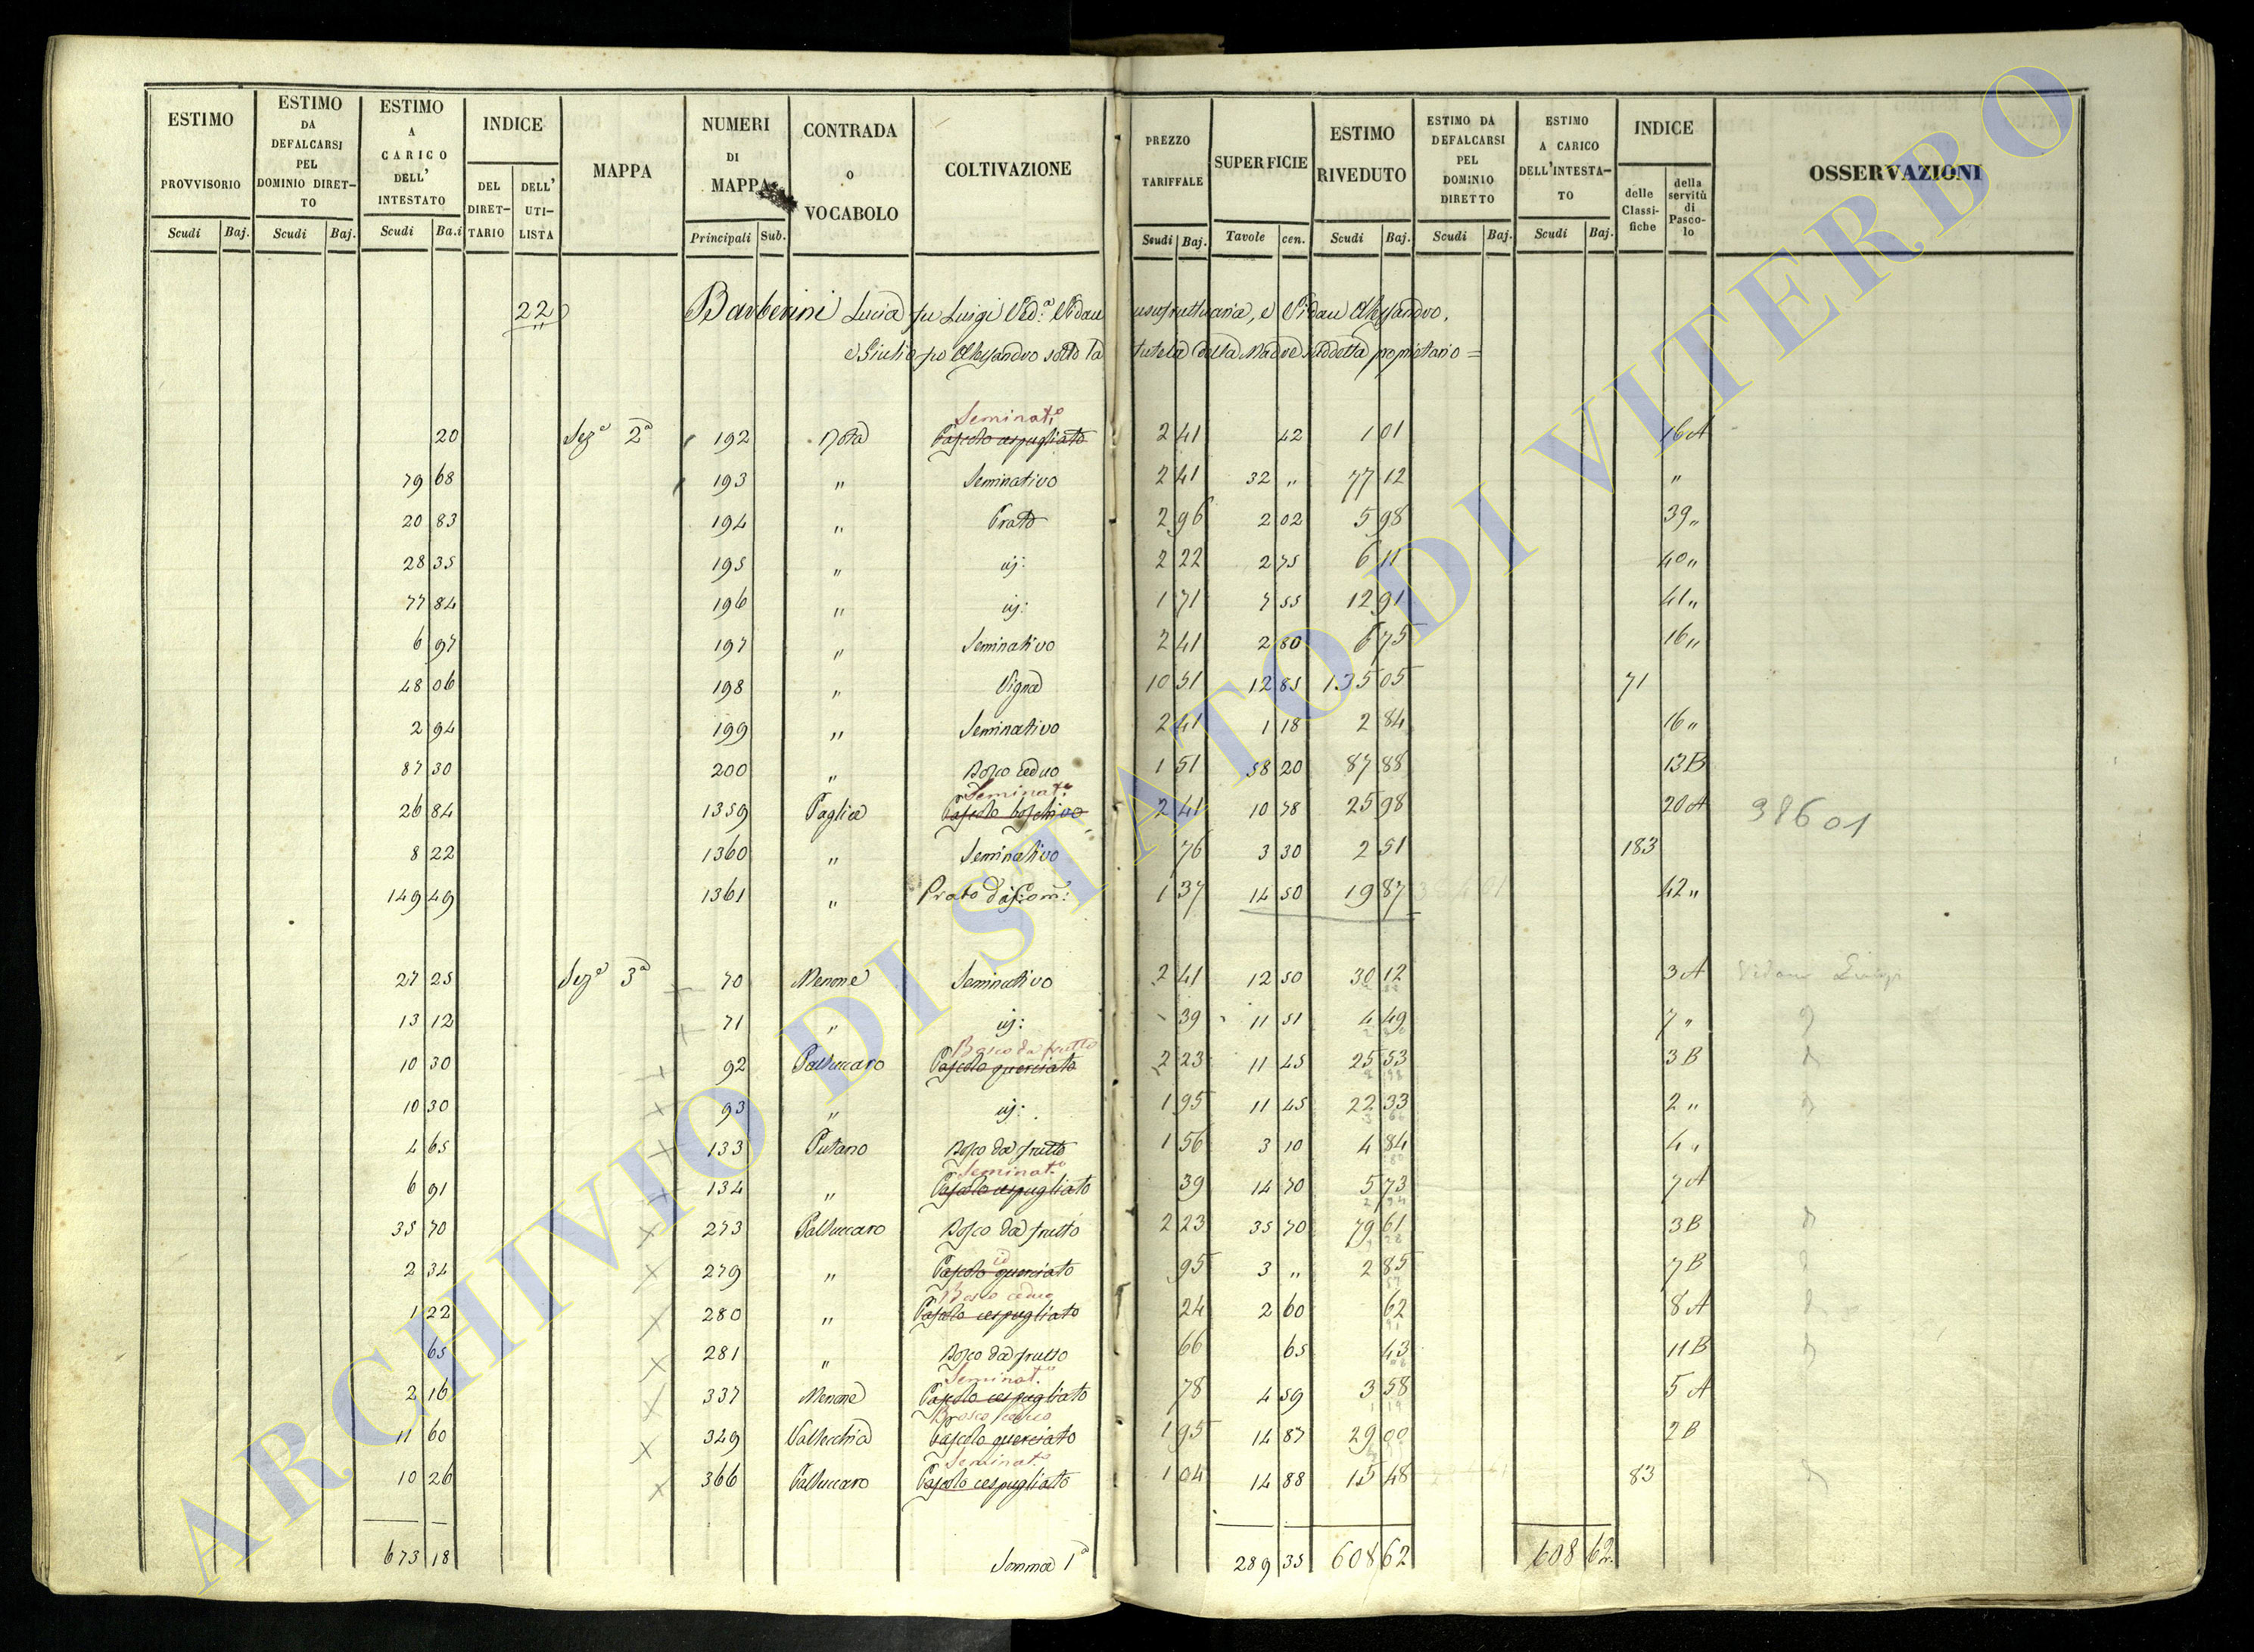 ESTIMO PROVVISORIO | ESTIMO DA DEFALCARSI PEL DOMINIO DIRET-TO | ESTIMO A CARICO DELL' INTESTATO | INDICE | MAPPA | NUMERI DI MAPPA | CONTRADA O VOCABOLO | COLTIVAZIONE | PREZZO TARIFFALE | SUPERFICIE | ESTIMO RIVEDUTO | ESTIMO DA DEFALCARSI PEL DOMINIO DIRETTO | ESTIMO A CARICO DELL'INTESTA-TO | INDICE | OSSERVAZIONI
DEL DIRET-TARIO | DELL' UTI-LISTA | delle Classi-fiche | della servitù di Pasco-lo
Scudi | Baj. | Scudi | Baj. | Scudi | Ba.i | Principali | Sub. | Scudi | Baj. | Tavole | cen. | Scudi | Baj. | Scudi | Baj. | Scudi | Baj.
22 Barberini Lucia fu Luigi Ved.a Vidau usufruttuaria, e Vidau Alessandro,
e Giulio fu Alessandro sotto la tutela della Madre suddetta proprietario =
Seminat.o
20 | Sez.e 2a | 192 | Pascolo cespugliato | 2 41 | 42 | 1 01 | 16 A
79 68 | 193 | " | Seminativo | 2 41 | 32 " | 77 12 | "
20 83 | 194 | " | Prato | 2 96 | 2 02 | 5 98 | 39 "
28 35 | 195 | " | id: | 2 22 | 2 75 | 6 11 | 40 "
77 84 | 196 | " | id: | 1 71 | 7 55 | 12 91 | 41 "
6 97 | 197 | " | Seminativo | 2 41 | 2 80 | 6 75 | 16 "
48 06 | 198 | " | Vigna | 10 51 | 12 85 | 135 05 | 71
2 94 | 199 | " | Seminativo | 2 41 | 1 18 | 2 84 | 16 "
87 30 | 200 | " | Bosco ceduo | 1 51 | 58 20 | 87 88 | 13 B
Seminat.o
26 84 | 1359 | Paglia | Pascolo boschivo | 2 41 | 10 78 | 25 98 | 20 A | 386 01
8 22 | 1360 | " | Seminativo | 76 | 3 30 | 2 51 | 183
149 49 | 1361 | " | Prato | 1 37 | 14 50 | 19 87 | 42 "
27 25 | Sez.e 3a | 70 | Menone | Seminativo | 2 41 | 12 50 | 30 12 | 3 A | Vidau Luigi
13 12 | 71 | " | id: | 39 | 11 51 | 4 49 | 7 "
Bosco da frutto
10 30 | 92 | Palluccaro | Pascolo querciato | 2 23 | 11 45 | 25 53 | 3 B
10 30 | 93 | " | id: | 1 95 | 11 45 | 22 33 | 2 "
4 65 | 133 | Putano | Bosco da frutto | 1 56 | 3 10 | 4 84 | 4 "
Seminat.o
6 91 | 134 | " | Pascolo cespugliato | 39 | 14 70 | 5 73 | 7 A
35 70 | 273 | Palluccaro | Bosco da frutto | 2 23 | 35 70 | 79 61 | 3 B
id
2 34 | 279 | " | Pascolo querciato | 95 | 3 " | 2 85 | 7 B
Bosco ceduo
1 22 | 280 | " | Pascolo cespugliato | 24 | 2 60 | 62 | 8 A
65 | 281 | " | Bosco da frutto | 66 | 65 | 43 | 11 B
Seminat.o
2 16 | 337 | Menone | Pascolo cespugliato | 78 | 4 59 | 3 58 | 5 A
Bosco ceduo
11 60 | 349 | Vallecchia | Pascolo querciato | 1 95 | 14 87 | 29 00 | 2 B
Seminat.o
10 26 | 366 | Palluccaro | Pascolo cespugliato | 1 04 | 14 88 | 15 48 | 83
673 18 | Somma 1a | 289 35 | 608 62 | 608 62
ARCHIVIO DI STATO DI VITERBO